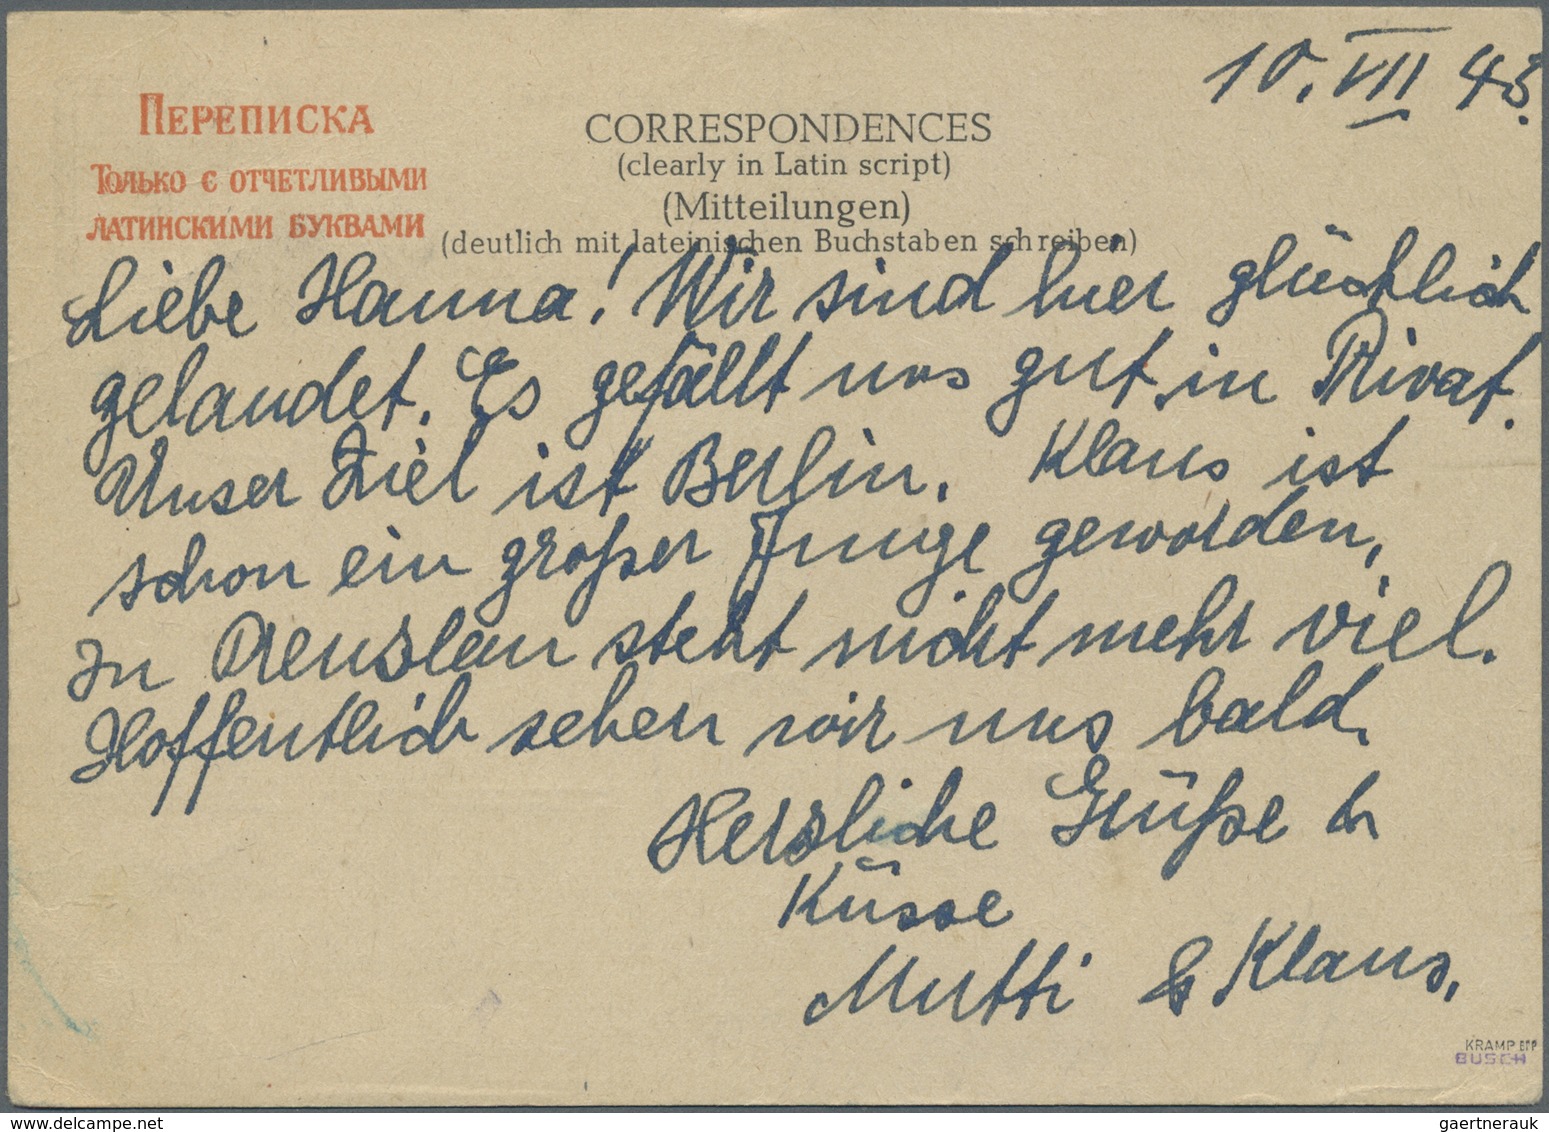 10. VII 45.
ПЕРЕПИСКА
ТОЛЬКО С ОТЧЕТЛИВЫМИ
ЛАТИНСКИМИ БУКВАМИ
CORRESPONDENCES
(clearly in Latin script)
(Mitteilungen)
(deutlich mit lateinischen Buchstaben schreiben)
Liebe Hanna! Wir sind hier glücklich
gelandet. Es gefällt uns gut in Privat.
Unser Ziel ist Berlin. Klaus ist
schon ein großer Junge geworden,
In Prenzlau steht nicht mehr viel.
Hoffentlich sehen wir uns bald.
Herzliche Grüße &
Küsse
Mutti & Klaus.
KRAMP BPP
BUSCH
gaertnerauk